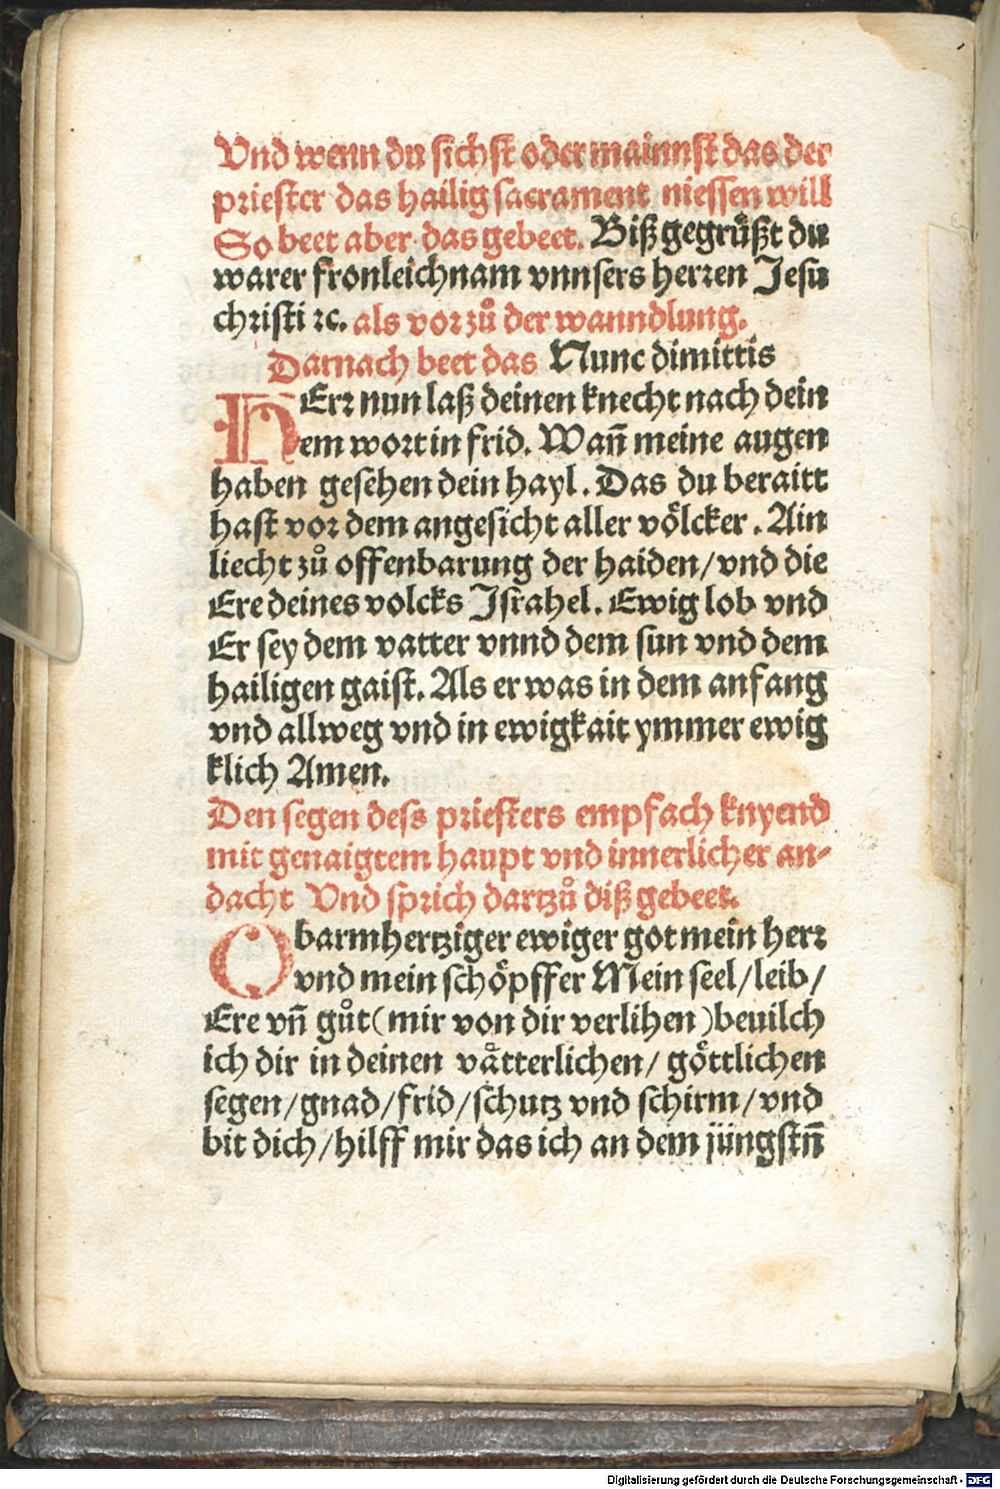 Vnd wenn du sichst oder mainnst das der
priester das hailig sacrament niessen will
So beet aber das gebeet. Biß gegrüßt du
warer fronleichnam vnnsers herꝛen Jesu
christi ꝛc. als vor zů der wanndlung.
Darnach beet das Nunc dimittis
HErꝛ nun laß deinen knecht nach dein
em wort in frid. Wañ meine augen
haben gesehen dein hayl. Das du beraitt
hast vor dem angesicht aller völcker. Ain
liecht zů offenbarung der haiden/ vnd die
Ere deines volcks Jsrahel. Ewig lob vnd
Er sey dem vatter vnnd dem sun vnd dem
hailigen gaist. Als er was in dem anfang
vnd allweg vnd in ewigkait ymmer ewig
klich Amen.
Den segen dess priesters empfach knyend
mit genaigtem haupt vnd innerlicher an⸗
dacht Vnd sprich dartzů diß gebeet.
O barmhertziger ewiger got mein herꝛ
vnd mein schöpffer Mein seel/ leib/
Ere vñ gůt (mir von dir verlihen) beuilch
ich dir in deinen våtterlichen/ göttlichen
segen/ gnad/ frid/ schutz vnd schirm/ vnd
bit dich/ hilff mir das ich an dem jüngstñ
Digitalisierung gefördert durch die Deutsche Forschungsgemeinschaft - DFG